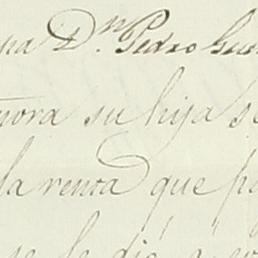 pa Dn. Pedro Gu
ñora su hija
la renta que p
se le dió a